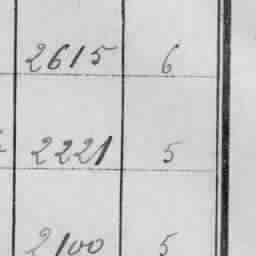 2615 6
2221 5
2100 5